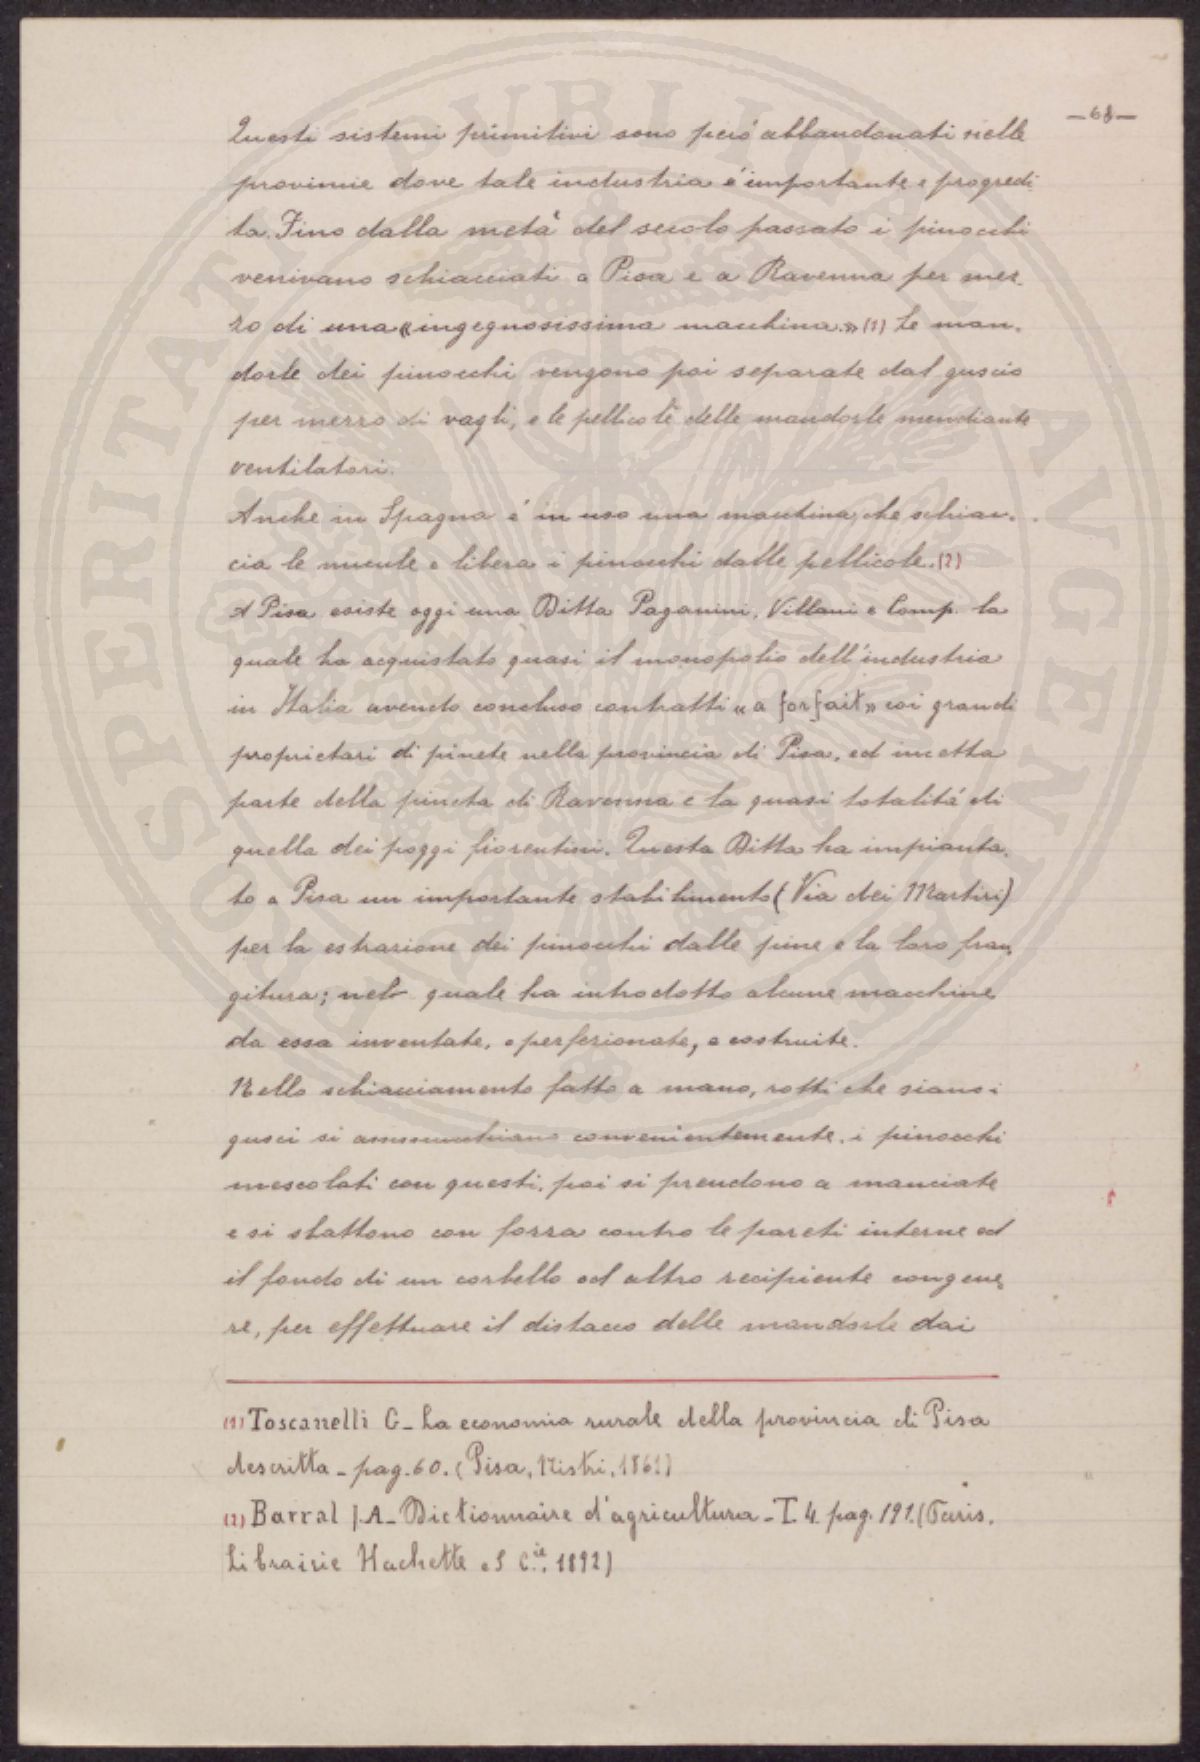 —68—
Questi sistemi primitivi sono però abbandonati nelle
provincie dove tale industria é importante e progredi-
ta. Fino dalla metà del secolo passato i pinocchi
venivano schiacciati a Pisa e a Ravenna per mez-
zo di una «ingegnosissima macchina.» (1) Le man-
dorle dei pinocchi vengono poi separate dal guscio
per mezzo di vagli, e le pellicole delle mandorle mendiante
ventilatori.
Anche in Spagna é in uso una macchina che schiac-
cia le nucule e libera i pinocchi dalle pellicole. (2)
A Pisa esiste oggi una Ditta Paganini, Villani e Comp. la
quale ha acquistato quasi il monopolio dell'industria
in Italia avendo concluso contratti «a forfait» coi grandi
proprietari di pinete nella provincia di Pisa, ed incetta
parte della pineta di Ravenna e la quasi totalitá di
quella dei poggi fiorentini. Questa Ditta ha impianta-
to a Pisa un importante stabilimento (Via dei Martiri)
per la estrazione dei pinocchi dalle pine e la loro fran-
gitura; nel quale ha introdotto alcune macchine
da essa inventate, o perfezionate, e costruite.
Nello schiacciamento fatto a mano, rotti che siano i
gusci si ammucchiano convenientemente, i pinocchi
mescolati con questi, poi si prendono a manciate
e si sbattono con forza contro le pareti interne ed
il fondo di un corbello od altro recipiente congene-
re, per effettuare il distacco delle mandorle dai
(1) Toscanelli G_ La economia rurale della provincia di Pisa
descritta _ pag. 60. (Pisa, Nistri, 1861)
(2) Barral J.A_ Dictionnaire d'agricultura _ T. 4. pag. 191. (Paris.
Librairie Hachette et C.ie. 1892)
SOSPERITATI PVBLICAE AVGENDAE